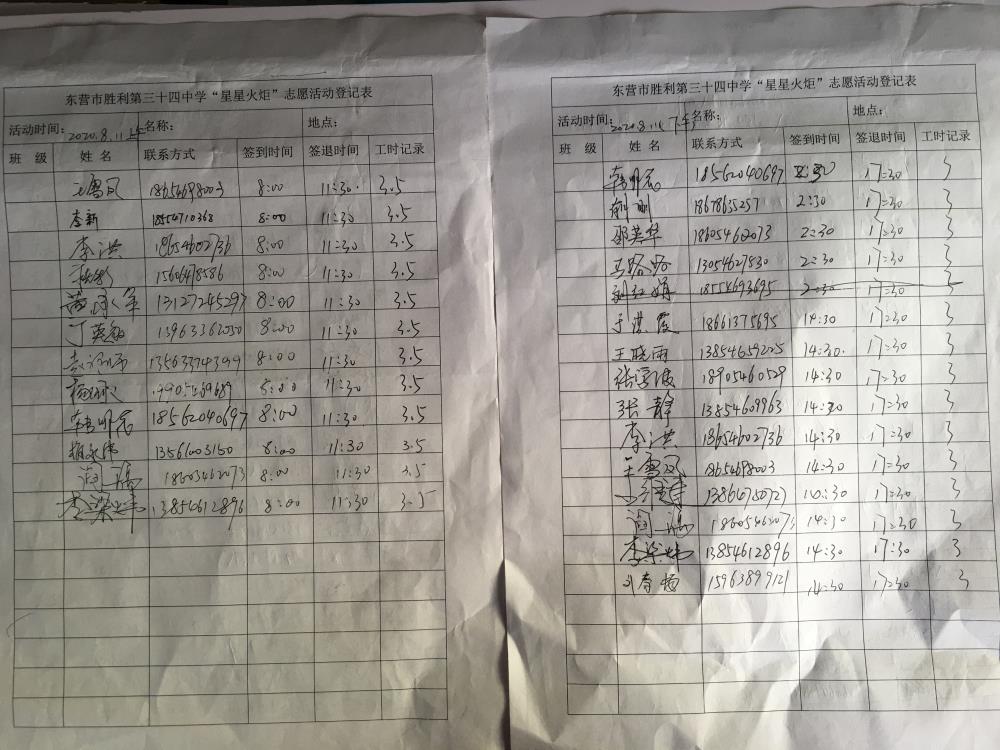 东营市胜利第三十四中学“星星火炬”志愿活动登记表
活动时间：2020.8.11 上午 名称： 地点：
班 级 姓 名 联系方式 签到时间 签退时间 工时记录
王雪凤 18654698003 8:00 11:30 3.5
李新 18554710368 8:00 11:30 3.5
李洪 18654602736 8:00 11:30 3.5
8:00 11:30 3.5
13127245297 8:00 11:30 3.5
丁英敏 13963362050 8:00 11:30 3.5
8:00 11:30 3.5
8:00 11:30 3.5
韩明名 18562040697 8:00 11:30 3.5
13561003150 8:00 11:30 3.5
8:00 11:30 3.5
李梁炜 13854612896 8:00 11:30 3.5
东营市胜利第三十四中学“星星火炬”志愿活动登记表
活动时间：2020.8.11 下午 名称： 地点：
班 级 姓 名 联系方式 签到时间 签退时间 工时记录
韩明名 18562040697 2:30 17:30 3
18678635257 2:30 17:30 3
邵英华 18605462073 2:30 17:30 3
马路路 13054627530 2:30 17:30 3
刘红娟 18554693695 2:30 17:30 3
于洪霞 18661375695 14:30 17:30 3
王晓雨 13854659205 14:30 17:30 3
18905460529 14:30 17:30 3
张静 13854609963 14:30 17:30 3
李洪 18654602736 14:30 17:30 3
王雪凤 18654698003 14:30 17:30 3
14:30 17:30 3
18605462073 14:30 17:30 3
李梁炜 13854612896 14:30 17:30 3
15963899121 14:30 17:30 3